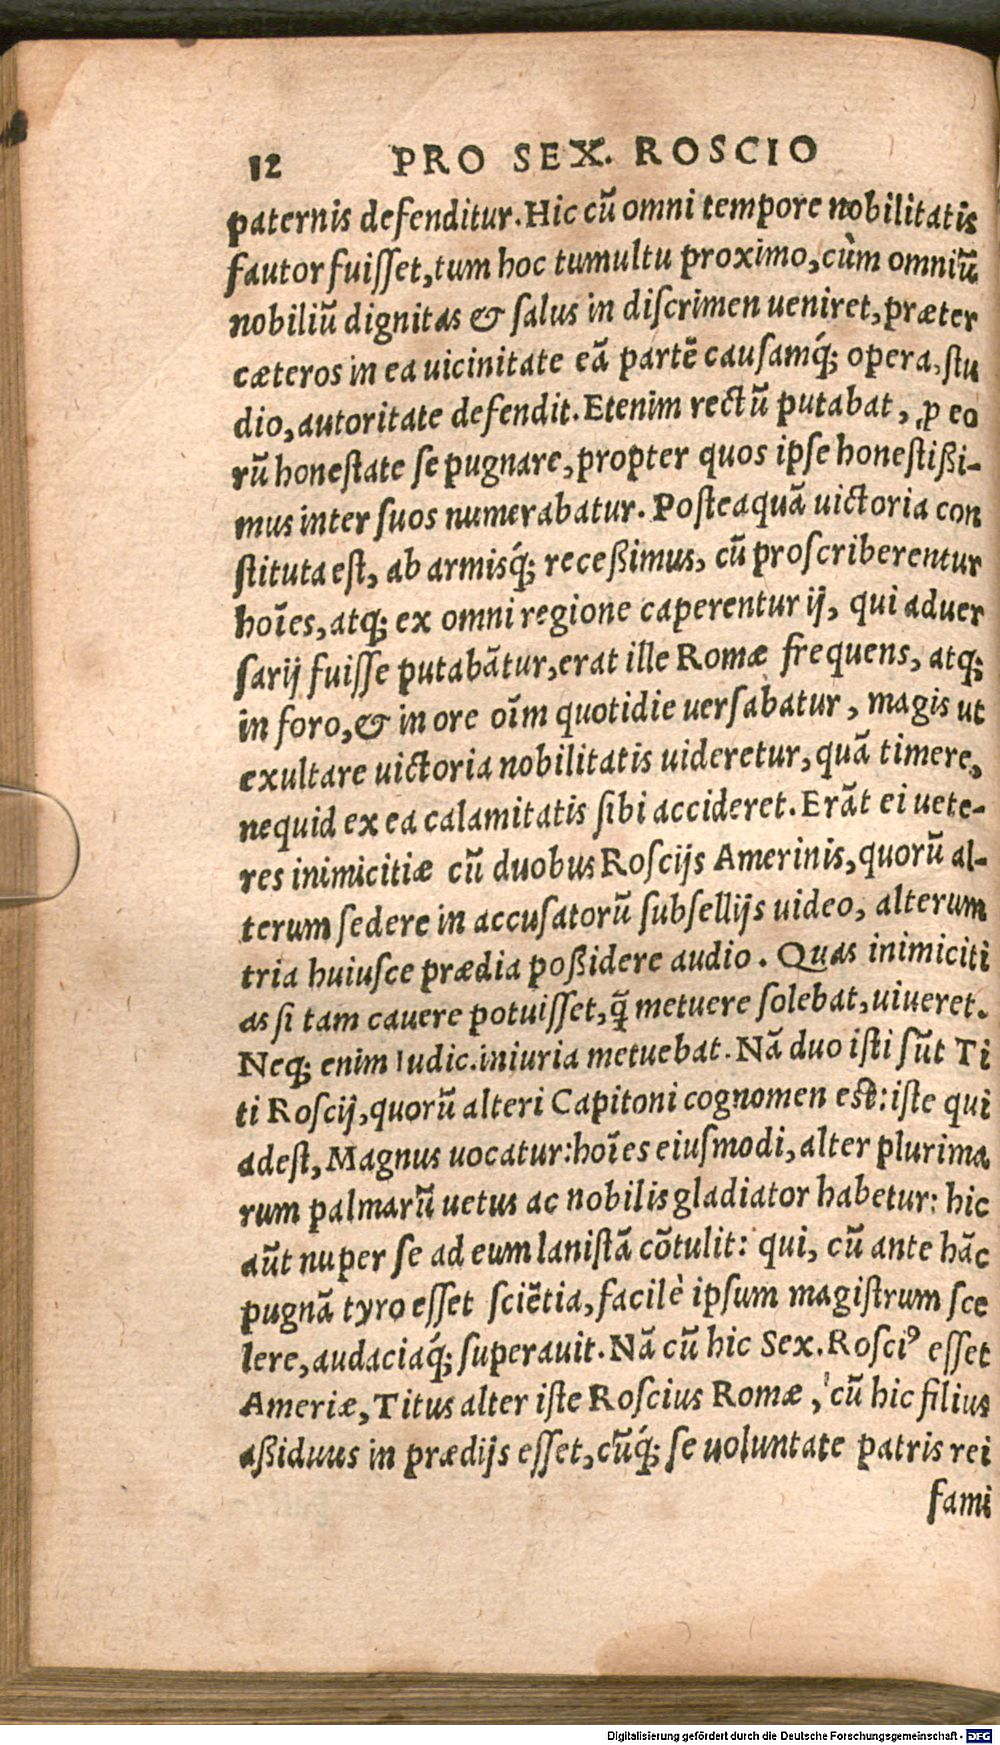 12 PRO SEX. ROSCIO
paternis defenditur. Hic cũ omni tempore nobilitatis
fautor fuiſſet, tum hoc tumultu proximo, cùm omniũ
nobiliũ dignitas & ſalus in diſcrimen ueniret, præter
cæteros in ea uicinitate eã partẽ cauſamq́; opera, ſtu
dio, autoritate defendit. Etenim rectũ putabat, ꝓ eo
rũ honeſtate ſe pugnare, propter quos ipſe honeſtißi-
mus inter ſuos numerabatur. Poſteaquã uictoria con
ſtituta eſt, ab armisq́; receßimus, cũ proſcriberentur
hoĩes, atq; ex omni regione caperentur ij, qui aduer
ſarij fuiſſe putabãtur, erat ille Romæ frequens, atq;
in foro, & in ore oĩm quotidie uerſabatur, magis ut
exultare uictoria nobilitatis uideretur, quã timere,
nequid ex ea calamitatis ſibi accideret. Erãt ei uete-
res inimicitiæ cũ duobus Roſcijs Amerinis, quorũ al-
terum ſedere in accuſatorũ ſubſellijs uideo, alterum
tria huiuſce prædia poßidere audio. Quas inimiciti
as ſi tam cauere potuiſſet, q̃ metuere ſolebat, uiueret.
Neq; enim Iudic. iniuria metuebat. Nã duo iſti ſũt Ti
ti Roſcij, quorũ alteri Capitoni cognomen est: iſte qui
adeſt, Magnus uocatur: hoĩes eiuſmodi, alter plurima
rum palmarũ uetus ac nobilis gladiator habetur: hic
aũt nuper ſe ad eum laniſtã cõtulit: qui, cũ ante hãc
pugnã tyro eſſet ſciẽtia, facilè ipſum magiſtrum ſce
lere, audaciaq́; ſuperauit. Nã cũ hic Sex. Roſciꝰ eſſet
Ameriæ, Titus alter iſte Roſcius Romæ, cũ hic filius
aßiduus in prædijs eſſet, cũq́; ſe uoluntate patris rei
fami
Digitalisierung gefördert durch die Deutsche Forschungsgemeinschaft - DFG